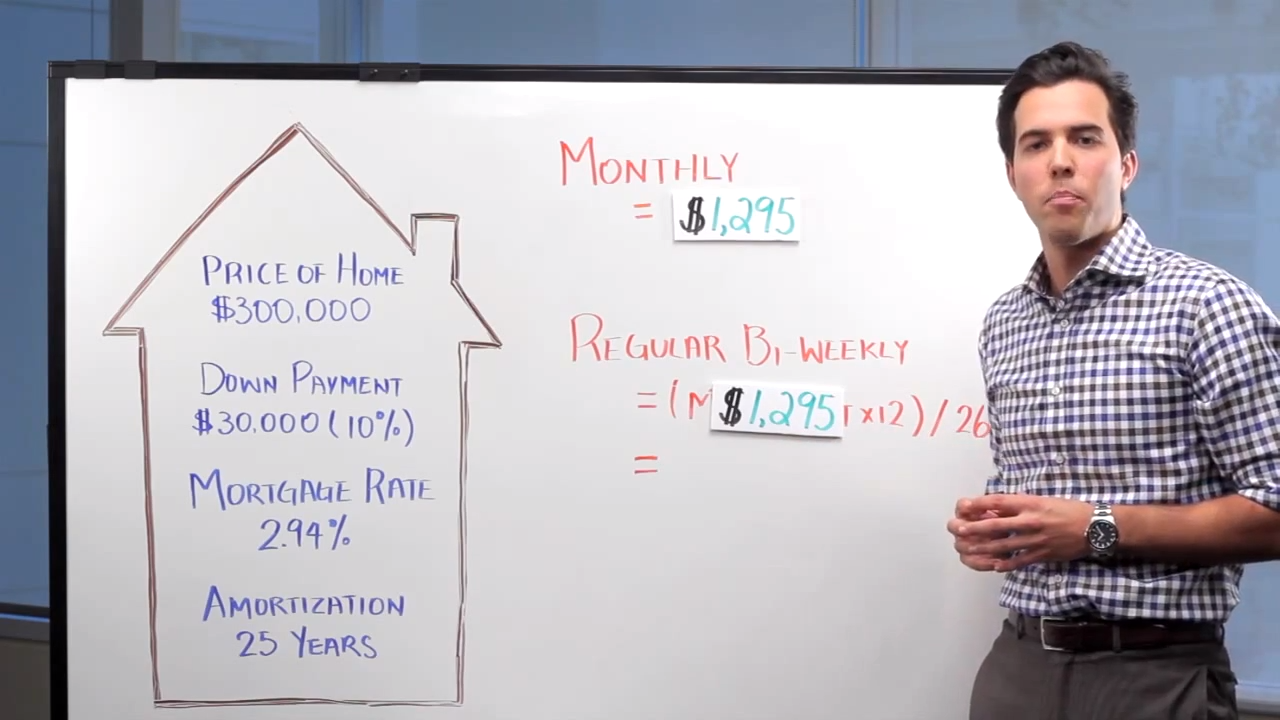 PRICE OF HOME
$300,000
DOWN PAYMENT
$30,000 (10%)
MORTGAGE RATE
2.94%
AMORTIZATION
25 YEARS
MONTHLY
= $1,295
REGULAR BI-WEEKLY
= ( $1,295 x12) / 26
=